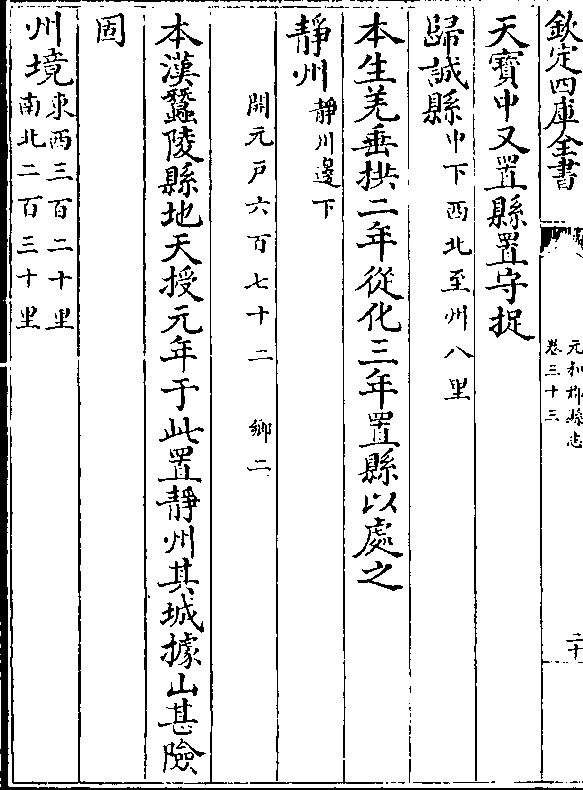 欽定四庫全書
元和郡縣志
卷三十三
二十
天寶中又置縣置守捉
歸誠縣中下西北至州八里
本生羌垂拱二年從化三年置縣以處之
靜州靜川邊下
開元戸六百七十二　鄉二
本漢蠶陵縣地天授元年于此置靜州其城據山甚險
固
州境東西三百二十里
南北二百三十里